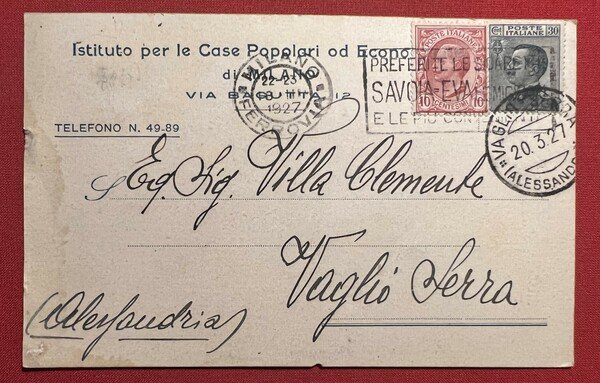 Istituto per le Case Popolari od Econo
di MILANO
VIA BAGUTTA, 12
TELEFONO N. 49-89
MILANO
22-23
1927
FERROVIA
PREFERITE LE
SAVOIA-
E LE PIÙ
POSTE ITALIANE
10 CENTESIMI 10
POSTE ITALIANE
30
20.3.27
(ALESSAND
Eg. Sig. Villa Clemente
Vaglio Serra
(Alessandria)